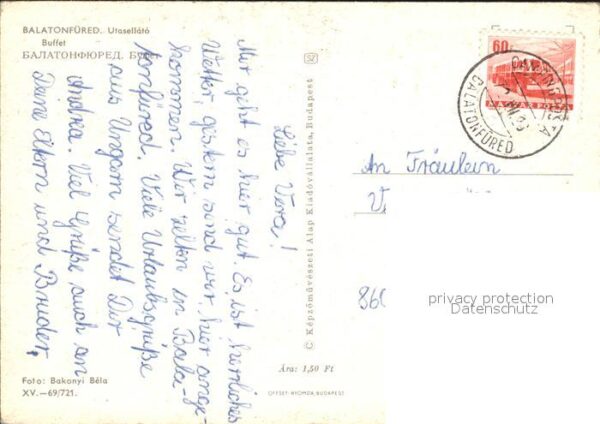 BALATONFÜRED. Utasellátó
Buffet
БАЛАТОНФЮРЕД.
Liebe Vera!
Mir geht es hier gut. Es ist herrliches
Wetter, gestern sind wir hier ange-
kommen. Wir zelten in Bala-
tonfüred. Viele Urlaubsgrüße
aus Ungarn sendet Dir
Andrea. Viel Grüße auch an
Deine Eltern und Bruder.
Foto: Bakonyi Béla
XV.—69/721.
© Képzőművészeti Alap Kiadóvállalata, Budapest
Ára: 1,50 Ft
OFFSET-NYOMDA, BUDAPEST
60f
MAGYAR POSTA
CAMPING POSTA
BALATONFÜRED
An Fräulein
860
privacy protection
Datenschutz